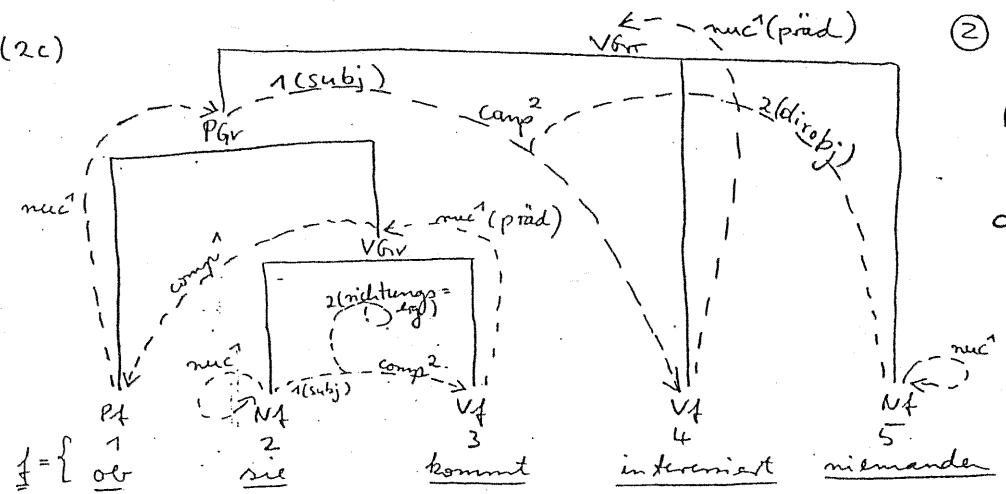 (2c)
nuc¹(präd)
②
VGrr
1(subj)
comp²
2(dirobj)
PGr
nuc¹
nuc¹(präd)
comp¹
VGrr
2(richtungs=
erg)
!
nuc¹
1(subj)
comp²
nuc¹
Pf Nf Vf Vf Nf
1 2 3 4 5
f = { ob sie kommt interessiert niemanden